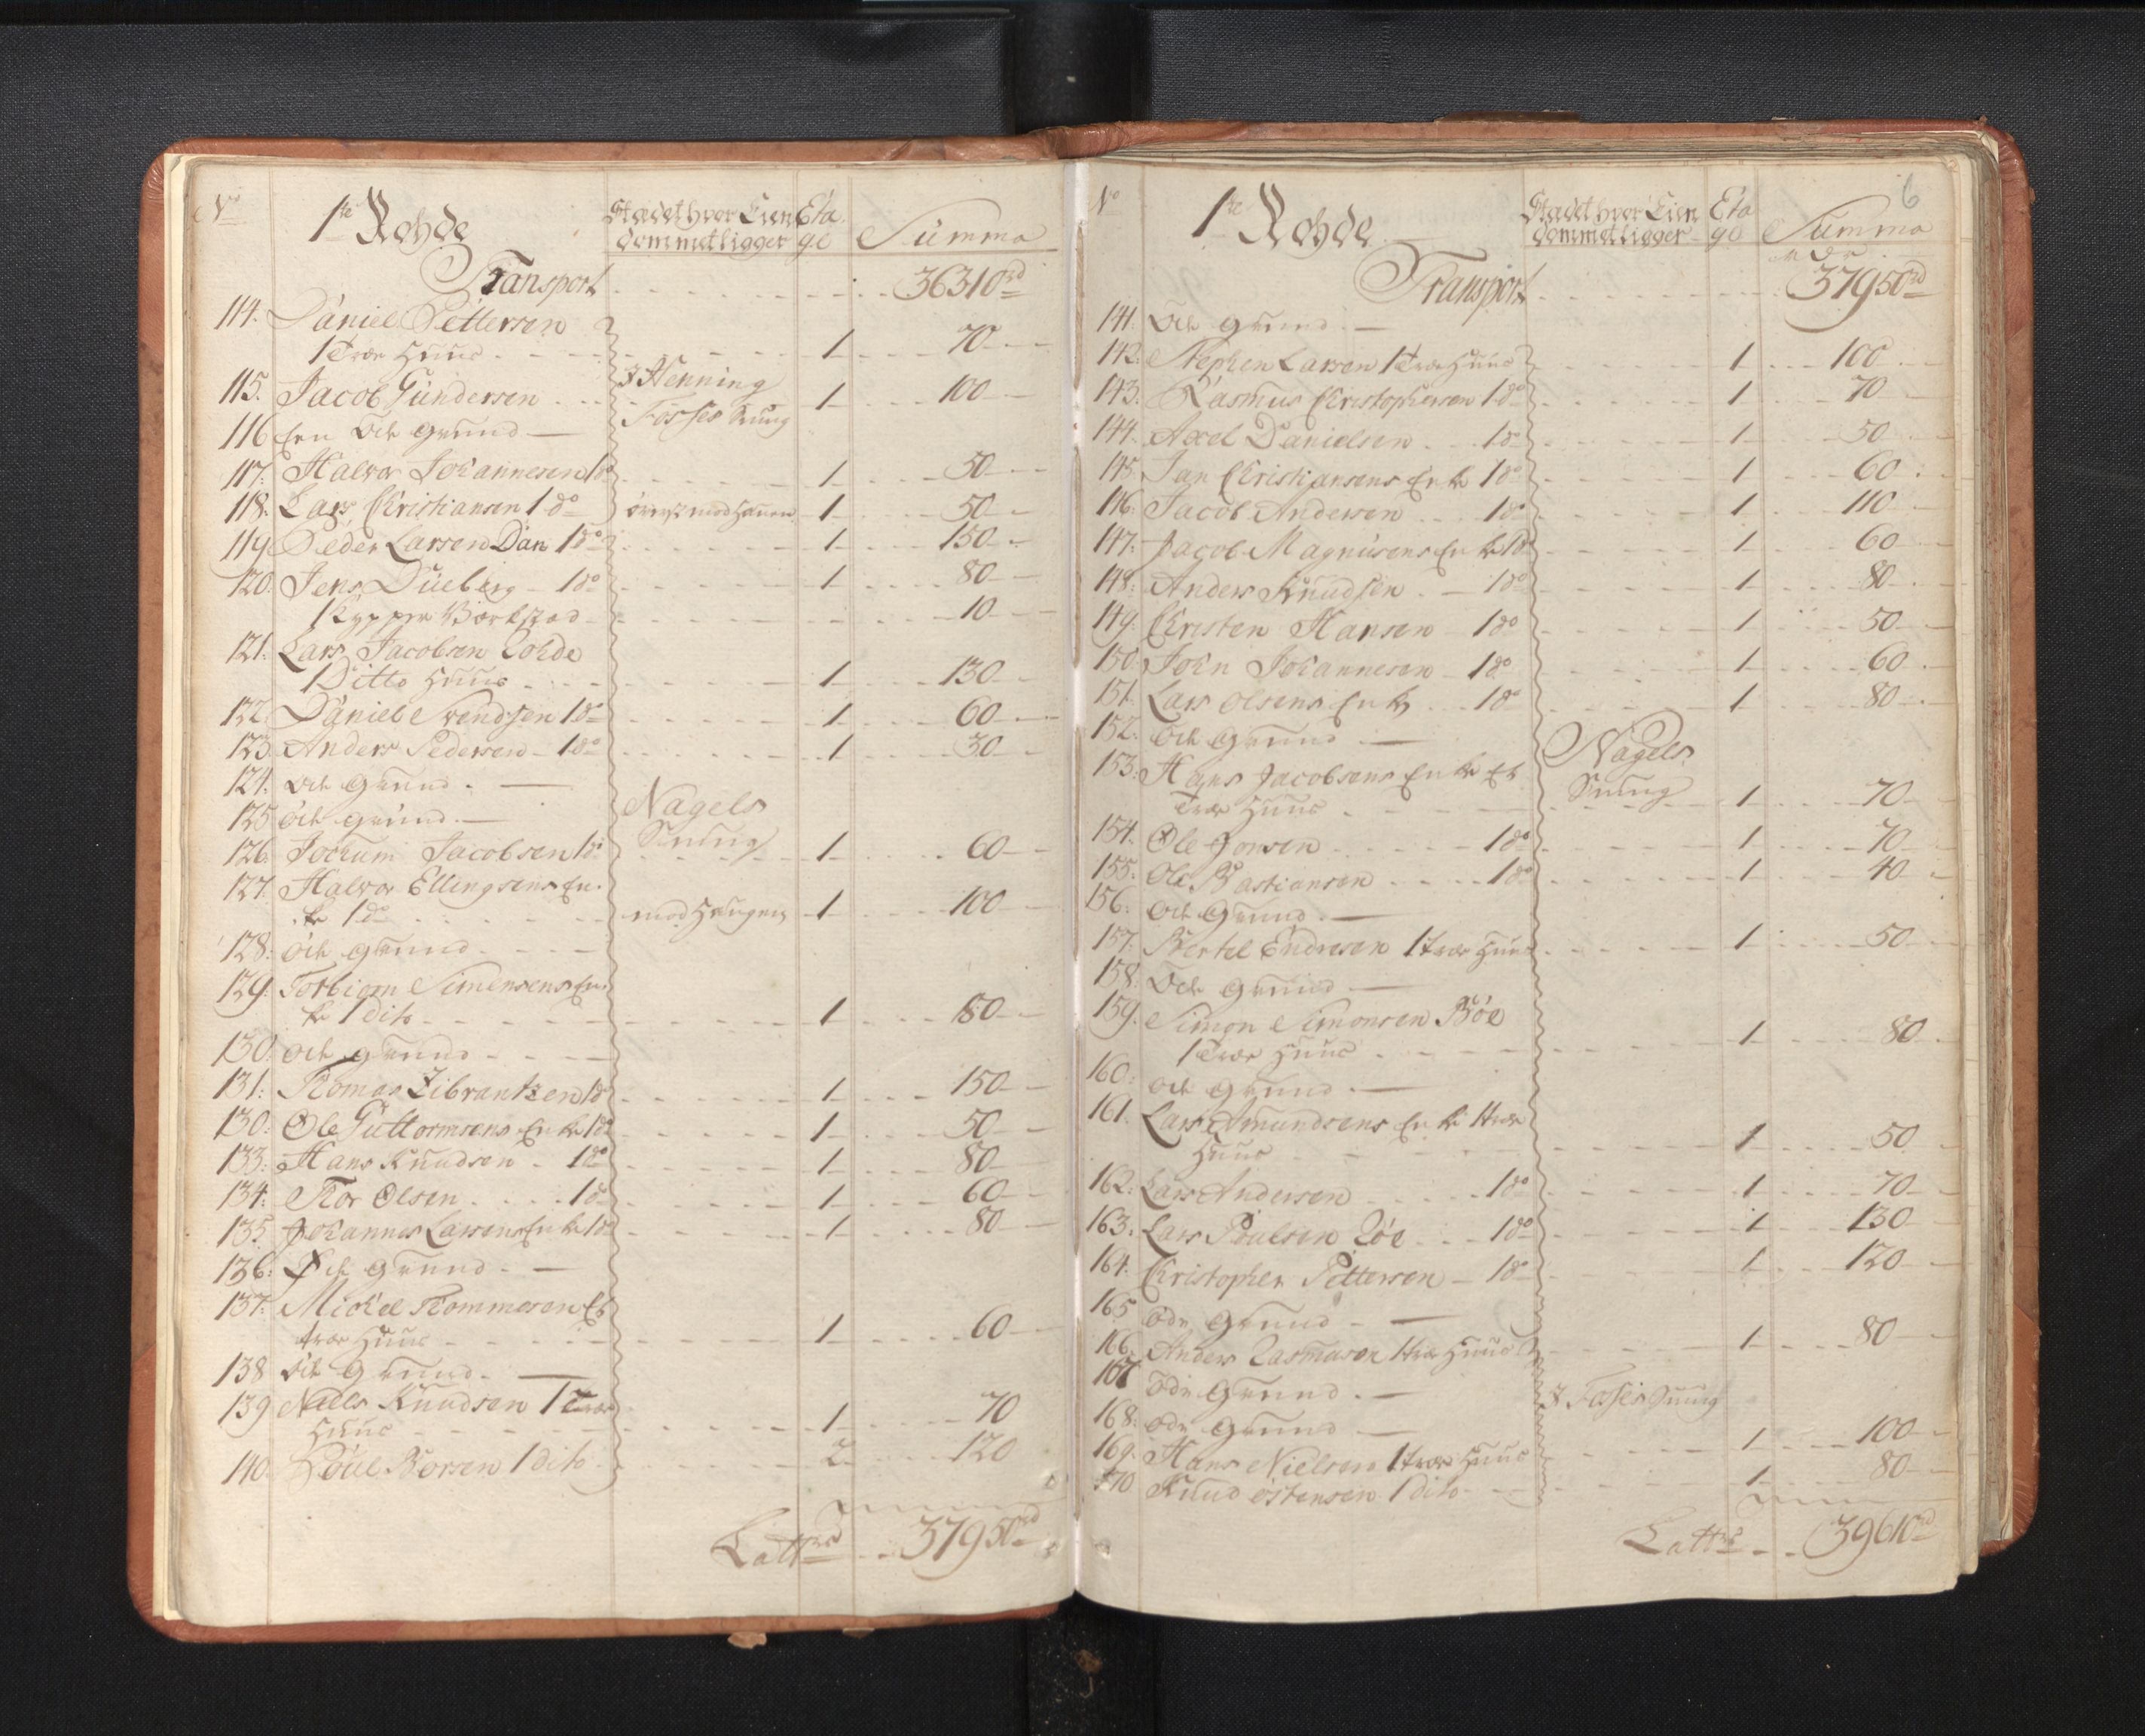 No 1te Rohde Stædet hvor Eien Eta Summa
dommet ligger ge
Transport 36310rd
114. Daniel Pettersen
1 Træ Huus 1 70
115. Jacob Gundersen I Henning 1 100
116 Een öde Grund Fosses Smug
117. Halvor Johannesen 1 do 1 50
118. Lars Christiansen 1 do øverst mod Hauen 1 50
119. Peder Larsen Dan 1 do 1 150
120. Jens Dueberg 1 do 1 80
1 Kyppen Værksted 10
121. Lars Jacobsen Rohde
1 Ditto Huus 1 130
122. Daniel Svendsen 1 do 1 60
123. Anders Pedersen 1 do 1 30
124. öde Grund
125 öde Grund Nagels
126. Jochum Jacobsen 1 do Smug 1 60
127. Halvor Ellingsens En
ke 1 do mod Haugen 1 100
128. öde Grund
129. Torbiorn Simensens En
ke 1 dito 1 80
130. öde Grund
131. Thomas Zibrantzen 1 do 1 150
130. Ole Guttormsens Enke 1 do 1 50
133. Hans Knudsen 1 do 1 80
134. Thor Olsen 1 do 1 60
135. Johannes Larsens Enke 1 do 1 80
136. Øde Grund
137. Michel Thommesen Et
træ Huus 1 60
138 öde Grund
139 Niels Knudsen 1 Træ
Huus 1 70
140. Poul Børsen 1 dito 2 120
Latters 37950rd
6
No 1te Rohde Stædet hvor Eien Eta Summa
dommet ligger ge
Transport 37950rd
141. öde Grund
142. Stephen Larsen 1 Træ Huus 1 100
143. Rasmus Christophersen 1 do 1 70
144. Axel Danielsen 1 do 1 50
145. Jan Christiansens Enke 1 do 1 60
146. Jacob Andersen 1 do 1 110
147. Jacob Magnusens Enke 1 do 1 60
148. Anders Knudsen 1 do 1 80
149. Christen Hansen 1 do 1 50
150. John Johannesen 1 do 1 60
151. Lars Olsens Enke 1 do 1 80
152. öde Grund Nagels
153. Hans Jacobsens Enke Et Smug
Træ Huus 1 70
154. Ole Jonsen 1 do 1 70
155. Ole Bastiansen 1 do 1 40
156. öde Grund
157. Bertel Endresen 1 træ Huus 1 50
158. öde Grund
159. Simon Simonsen Bøe
1 Træ Huus 1 80
160. öde Grund
161. Lars Amundsens Enke 1 træ
Huus 1 50
162. Lars Andersen 1 do 1 70
163. Lars Poulsen Røe 1 do 1 130
164. Christopher Pettersen 1 do 1 120
165 öde Grund
166. Anders Rasmusen 1 træ Huus 1 80
167 öde Grund I Foses Smug
168. öde Grund
169. Hans Nielsen 1 træ Huus 1 100
170 Knud Østensen 1 dito 1 80
Latters 39610rd